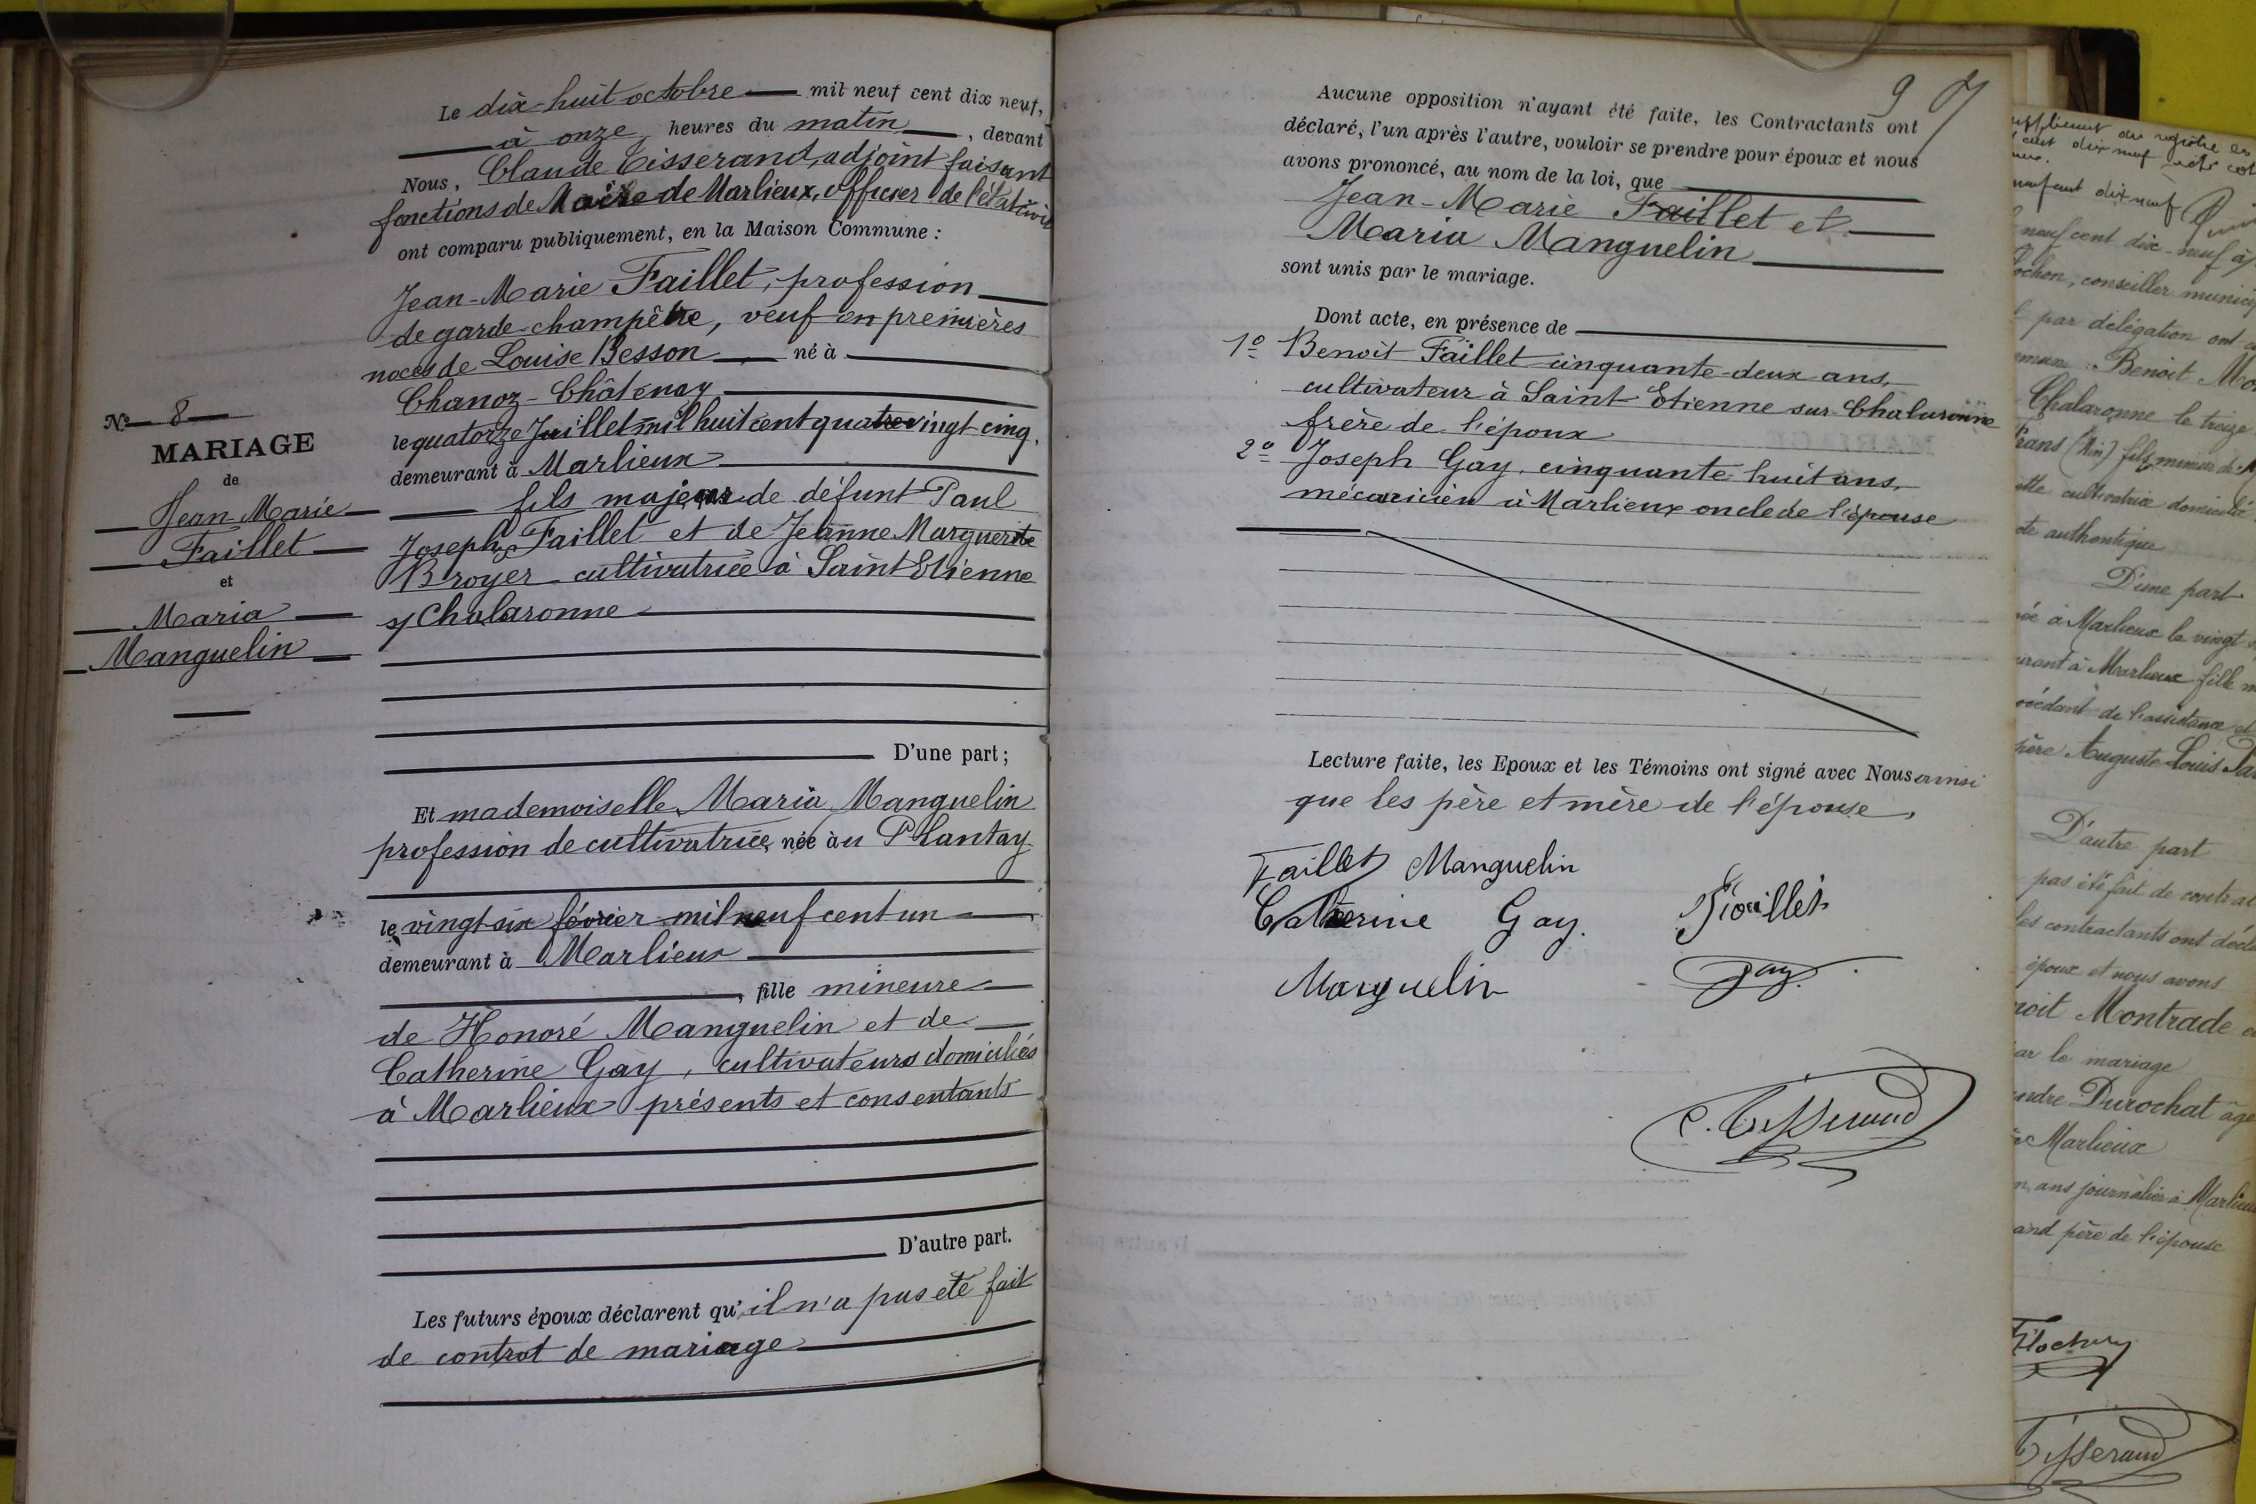 Le dix-huit octobre mil neuf cent dix neuf,
à onze heures du matin, devant
Nous, Claude Tisserand, adjoint faisant
fonctions de Maire de Marlieux, officier de l'état civil
ont comparu publiquement, en la Maison Commune :
Jean-Marie Faillet, profession
de garde-champêtre, veuf en premières
noces de Louise Besson, né à
Chanoz-Châtenay
le quatorze Juillet mil huit cent quatre vingt cinq,
demeurant à Marlieux
fils majeur de défunt Paul
Joseph Faillet et de Jeanne Marguerite
Broyer cultivatrice à Saint Etienne
s/ Chalaronne
D'une part ;
Et mademoiselle Maria Manguelin
profession de cultivatrice, née au Plantay
le vingt-six février mil neuf cent un
demeurant à Marlieux
, fille mineure
de Honoré Manguelin et de
Catherine Gay, cultivateurs domiciliés
à Marlieux présents et consentants
D'autre part.
Les futurs époux déclarent qu'il n'a pas été fait
de contrat de mariage
N° 8
MARIAGE
de
Jean Marie
Faillet
et
Maria
Manguelin
9
Aucune opposition n'ayant été faite, les Contractants ont
déclaré, l'un après l'autre, vouloir se prendre pour époux et nous
avons prononcé, au nom de la loi, que
Jean-Marie Faillet et
Maria Manguelin
sont unis par le mariage.
Dont acte, en présence de
1° Benoit Faillet cinquante-deux ans,
cultivateur à Saint Etienne sur Chalaronne
frère de l'époux
2° Joseph Gay, cinquante huit ans,
mécanicien à Marlieux oncle de l'épouse
Lecture faite, les Epoux et les Témoins ont signé avec Nous ainsi
que les père et mère de l'épouse,
Faillet Manguelin
Catherine Gay.
Manguelin
Gay.
C. Tisserand
neuf cent dix neuf
neuf cent dix-neuf à
conseiller
par délégation ont
Benoit
Chalaronne le treize
(Ain) fils mineur de
cultivatrice
authentique
D'une part
à Marlieux le vingt
à Marlieux fille
de l'assistance et
père Auguste Louis
D'autre part
pas été fait de contrat
les contractants ont
époux et nous avons
Montrade
par le mariage
Durochat âgé
Marlieux
ans journalier à Marlieux
père de l'épouse
Tisserand